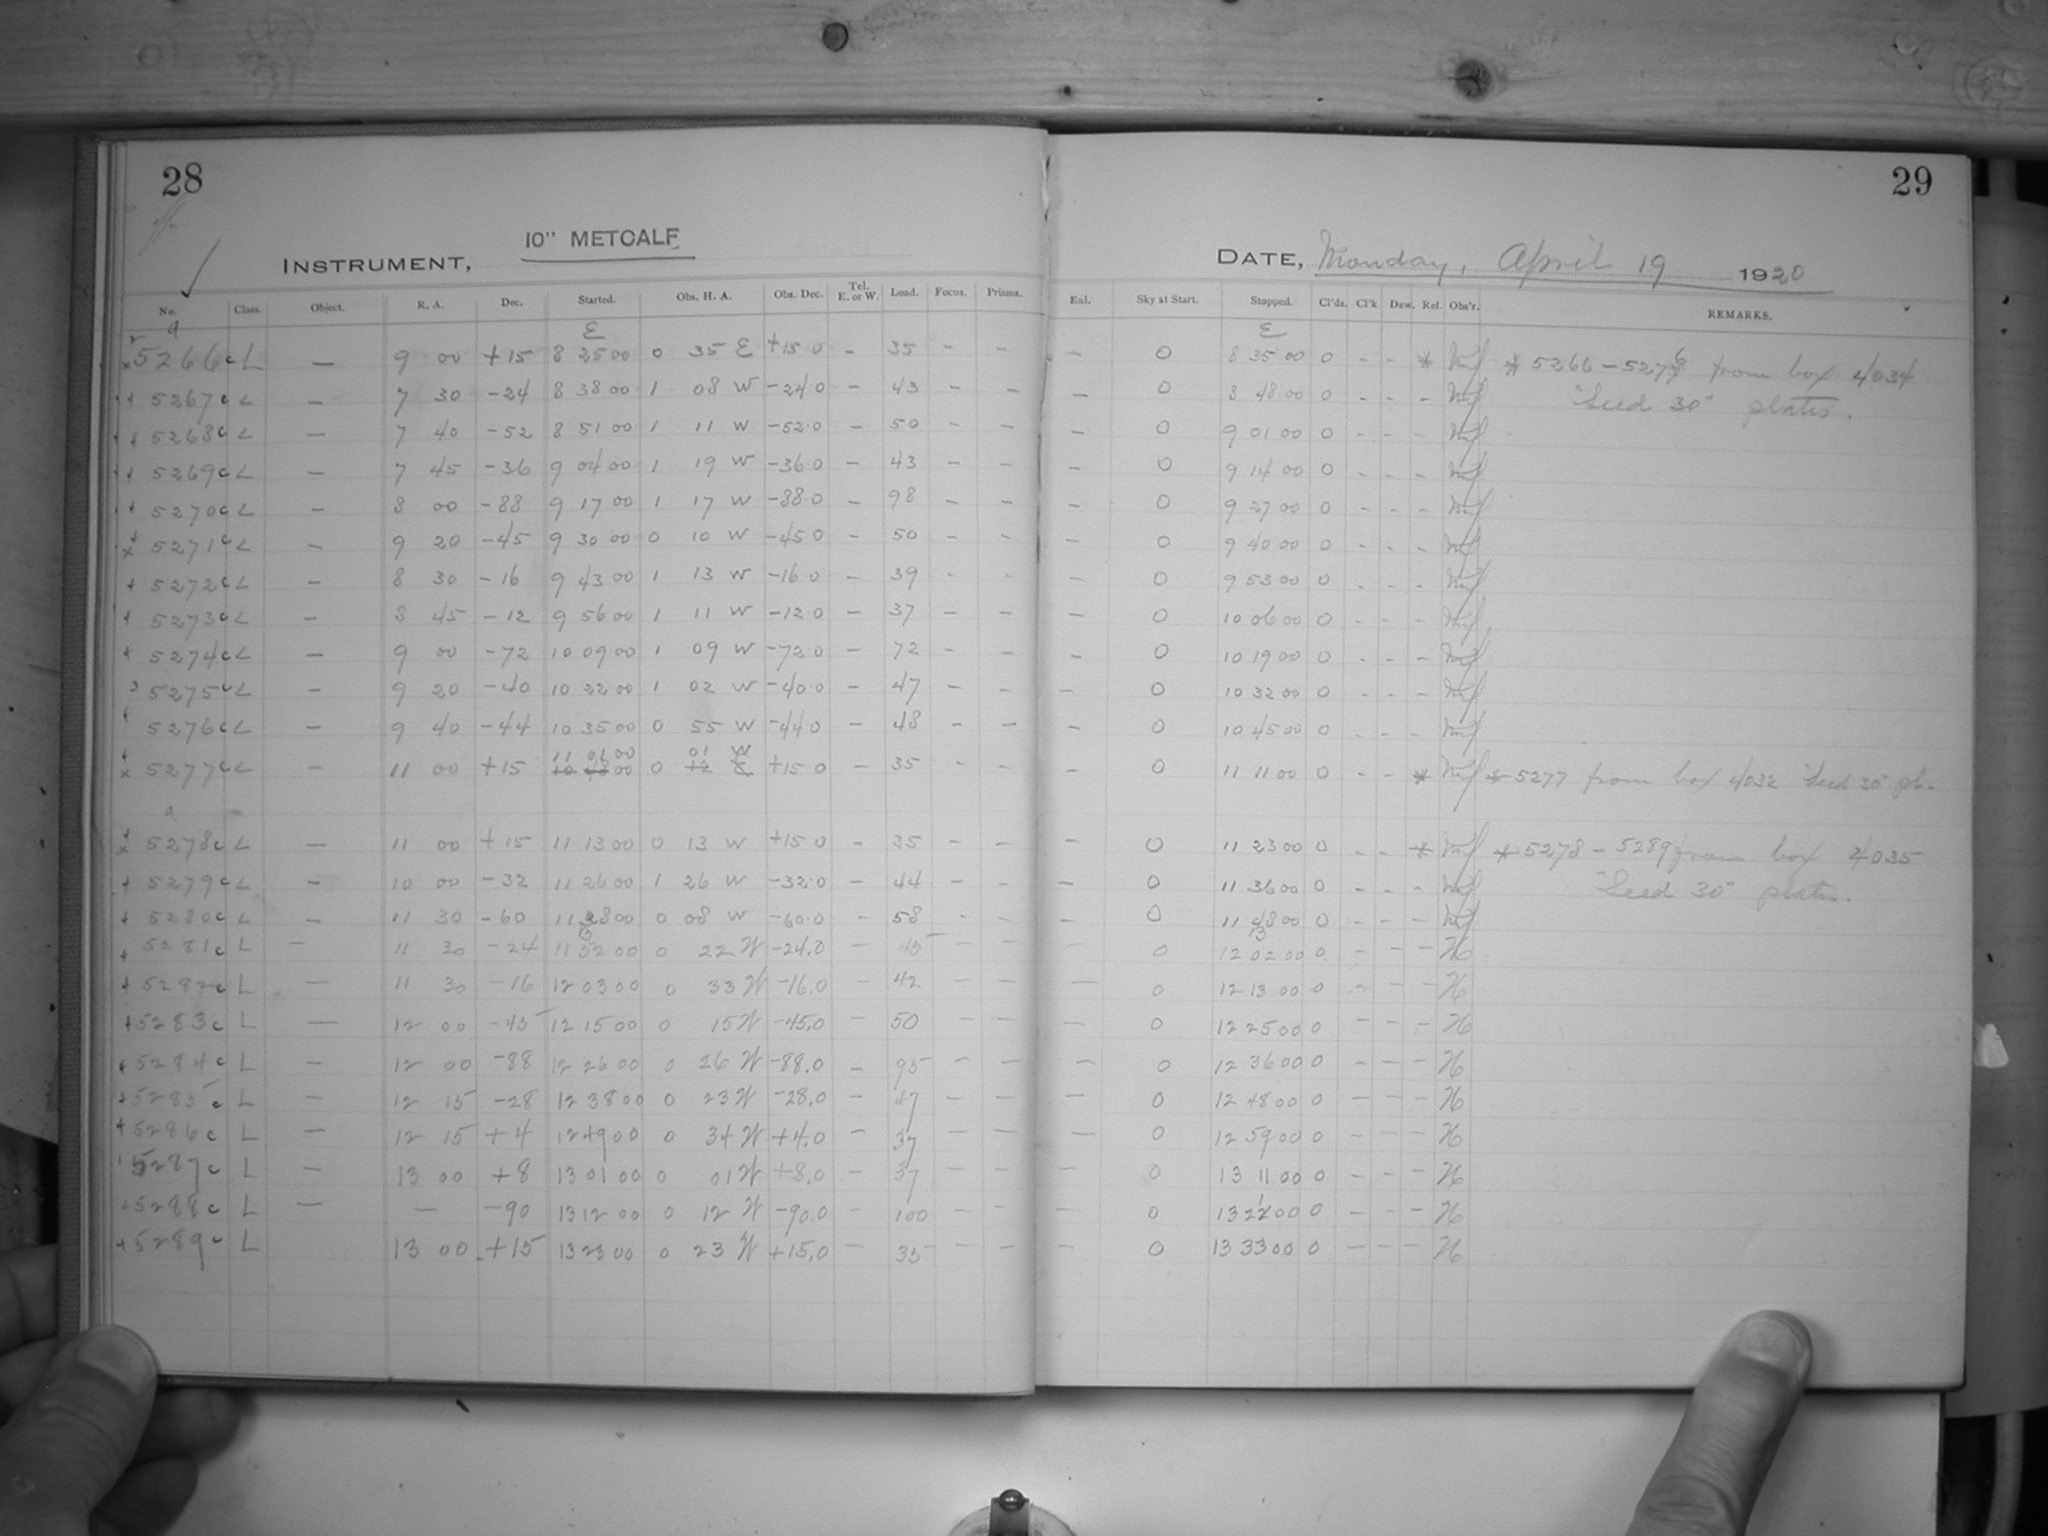 28
29
10" METCALF
INSTRUMENT,
DATE, Monday, April 19 1920
No. Class. Object. R. A. Dec. Started. Obs. H. A. Obs. Dec. Tel. E. or W. Load. Focus. Prisms. Enl. Sky at Start. Stopped. Cl'ds. Cl'k Dew. Ref. Obs'r. REMARKS.
a E E
5266 c L — 9 00 +15 8 25 00 0 35 E +15.0 - 35 - - - 0 8 35 00 0 - - * * 5266 - 5276 from box 4034
5267 c L — 7 30 -24 8 38 00 1 08 W -24.0 - 43 - - - 0 8 48 00 0 - - - "Seed 30" plates.
5268 c L — 7 40 -52 8 51 00 1 11 W -52.0 - 50 - - - 0 9 01 00 0 - - -
5269 c L — 7 45 -36 9 04 00 1 19 W -36.0 - 43 - - - 0 9 14 00 0 - - -
5270 c L — 8 00 -88 9 17 00 1 17 W -88.0 - 98 - - - 0 9 27 00 0 - - -
5271 c L — 9 20 -45 9 30 00 0 10 W -45.0 - 50 - - - 0 9 40 00 0 - - -
5272 c L — 8 30 -16 9 43 00 1 13 W -16.0 - 39 - - - 0 9 53 00 0 - - -
5273 c L — 8 45 -12 9 56 00 1 11 W -12.0 - 37 - - - 0 10 06 00 0 - - -
5274 c L — 9 00 -72 10 09 00 1 09 W -72.0 - 72 - - - 0 10 19 00 0 - - -
5275 c L — 9 20 -40 10 22 00 1 02 W -40.0 - 47 - - - 0 10 32 00 0 - - -
5276 c L — 9 40 -44 10 35 00 0 55 W -44.0 - 48 - - - 0 10 45 00 0 - - -
11 01 00 01 W
5277 c L — 11 00 +15 10 48 00 0 12 E +15.0 - 35 - - - 0 11 11 00 0 - - * * 5277 from box 4032 "Seed 30" pl.
a
5278 c L — 11 00 +15 11 13 00 0 13 W +15.0 - 35 - - - 0 11 23 00 0 - - * * 5278 - 5289 from box 4035
5279 c L — 10 00 -32 11 26 00 1 26 W -32.0 - 44 - - - 0 11 36 00 0 - - - "Seed 30" plates.
5280 c L — 11 30 -60 11 38 00 0 08 W -60.0 - 58 - - - 0 11 48 00 0 - - -
5281 c L — 11 30 -24 11 52 00 0 22 W -24.0 - 45 - - - 0 12 02 00 0 - - - H
5282 c L — 11 30 -16 12 03 00 0 33 W -16.0 - 42 - - - 0 12 13 00 0 - - - H
5283 c L — 12 00 -45 12 15 00 0 15 W -45.0 - 50 - - - 0 12 25 00 0 - - - H
5284 c L — 12 00 -88 12 26 00 0 26 W -88.0 - 95 - - - 0 12 36 00 0 - - - H
5285 c L — 12 15 -28 12 38 00 0 23 W -28.0 - 47 - - - 0 12 48 00 0 - - - H
5286 c L — 12 15 +4 12 49 00 0 34 W +4.0 - 37 - - - 0 12 59 00 0 - - - H
5287 c L — 13 00 +8 13 01 00 0 01 W +8.0 - 37 - - - 0 13 11 00 0 - - - H
5288 c L — — -90 13 12 00 0 12 W -90.0 - 100 - - - 0 13 22 00 0 - - - H
5289 c L 13 00 +15 13 23 00 0 23 W +15.0 - 35 - - - 0 13 33 00 0 - - - H